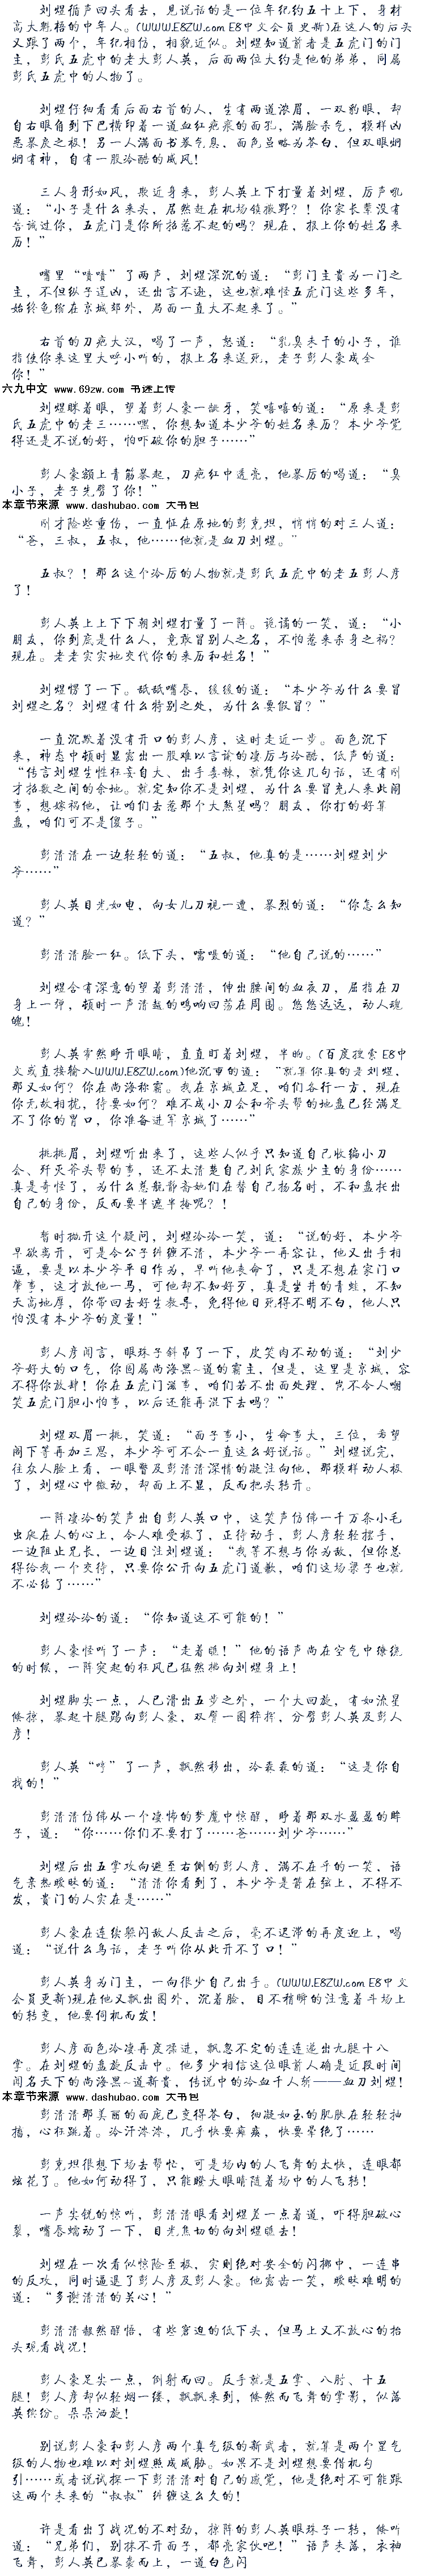 刘煜循声回头看去，见说话的是一位年纪约五十上下，身材
高大魁梧的中年人。(WWW.E8ZW.com E8中文会员更新)在这人的后头
又跟了两个，年纪相仿，相貌近似。刘煜知道前者是五虎门的门
主，彭氏五虎中的老大彭人英，后面两位大约是他的弟弟，同属
彭氏五虎中的人物了。
刘煜仔细看看后面右首的人，生有两道浓眉，一双豹眼，却
自右眼角到下巴横印着一道血红疤痕的面孔，满脸杀气，模样凶
恶暴戾之极！另一人满面书卷气息、面色虽略为苍白，但双眼炯
炯有神，自有一股冷酷的威风！
三人身形如风，欺近身来，彭人英上下打量着刘煜，厉声吼
道：“小子是什么来头，居然赶在机场镇撒野？！你家长辈没有
告诫过你，五虎门是你所招惹不起的吗？现在，报上你的姓名来
历！”
嘴里“啧啧”了两声，刘煜深沉的道：“彭门主贵为一门之
主，不但纵子逞凶，还出言不逊，这也就难怪五虎门这些多年，
始终龟缩在京城郊外，局面一直大不起来了。”
右首的刀疤大汉，喝了一声，怒道：“乳臭未干的小子，谁
指使你来这里大呼小叫的，报上名来送死，老子彭人豪成全
你！”
六九中文 www.69zw.com 书迷上传
刘煜眯着眼，望着彭人豪一龇牙，笑嘻嘻的道：“原来是彭
氏五虎中的老三……嘿，你想知道本少爷的姓名来历？本少爷觉
得还是不说的好，怕吓破你的胆子……”
彭人豪额上青筋暴起，刀疤红中透亮，他暴厉的喝道：“臭
小子，老子先劈了你！”
本章节来源 www.dashubao.com 大书包
刚才险些重伤，一直怔在原地的彭克坦，悄悄的对三人道：
“爸，三叔，五叔，他……他就是血刀刘煜。”
五叔？！那么这个冷厉的人物就是彭氏五虎中的老五彭人彦
了！
彭人英上上下下朝刘煜打量了一阵。诡谲的一笑，道：“小
朋友，你到底是什么人，竟敢冒别人之名，不怕惹来杀身之祸？
现在。老老实实地交代你的来历和姓名！”
刘煜愣了一下。舐舐嘴唇，缓缓的道：“本少爷为什么要冒
刘煜之名？刘煜有什么特别之处，为什么要假冒？”
一直沉默着没有开口的彭人彦，这时走近一步。面色沉下
来，神态中顿时显露出一股难以言谕的凌厉与冷酷，低声的道：
“传言刘煜生性狂妄自大、出手毒辣，就凭你这几句话，还有刚
才招数之间的余地。就定知你不是刘煜，为什么要冒充人来此闹
事，想嫁祸他，让咱们去惹那个大煞星吗？朋友，你打的好算
盘，咱们可不是傻子。”
彭清清在一边轻轻的道：“五叔，他真的是……刘煜刘少
爷……”
彭人英目光如电，向女儿刀视一遭，暴烈的道：“你怎么知
道？”
彭清清脸一红。低下头，嚅嗳的道：“他自己说的……”
刘煜含有深意的望着彭清清，伸出腰间的血夜刀，屈指在刀
身上一弹，顿时一声清越的鸣响回荡在周围。悠悠远远，动人魂
魄！
彭人英霍然睁开眼睛，直直盯着刘煜，半晌。(百度搜索 E8中
文或直接输入WWW.E8ZW.com)他沉重的道：“就算你真的是刘煜，
那又如何？你在尚海称霸。我在京城立足，咱们各行一方，现在
你无故相扰，待要如何？难不成小刀会和斧头帮的地盘已经满足
不了你的胃口，你准备进军京城了……”
挑挑眉，刘煜听出来了，这些人似乎只知道自己收编小刀
会、歼灭斧头帮的事，还不太清楚自己刘氏家族少主的身份……
真是奇怪了，为什么慈航静斋她们在替自己扬名时，不和盘托出
自己的身份，反而要半遮半掩呢？！
暂时抛开这个疑问，刘煜冷冷一笑，道：“说的好，本少爷
早欲离开，可是令公子纠缠不清，本少爷一再容让，他又出手相
逼，要是以本少爷平日作为，早听他丧命了，只是不想在家门口
肇事，这才放他一马，可他却不知好歹，真是坐井的青蛙，不知
天高地厚，你带回去好生教导，免得他日死得不明不白，他人只
怕没有本少爷的度量！”
彭人彦闻言，眼珠子斜吊了一下，皮笑肉不动的道：“刘少
爷好大的口气，你固属尚海黑~道的霸主，但是，这里是京城，容
不得你放肆！你在五虎门滋事，咱们若不出面处理，岂不令人嘲
笑五虎门胆小怕事，以后还能再混下去吗？”
刘煜双眉一挑，笑道：“面子事小，生命事大，三位，希望
阁下等再加三思，本少爷可不会一直这么好说话。”刘煜说完，
往众人脸上看，一眼瞥及彭清清深情的凝注向他，那模样动人极
了，刘煜心中微动，却面上不显，反而把头转开。
一阵凌冷的笑声出自彭人英口中，这笑声仿佛一千万条小毛
虫爬在人的心上，令人难受极了，正待动手，彭人彦轻轻摆手，
一边阻止兄长，一边目注刘煜道：“我等不想与你为敌，但你总
得给我一个交待，只要你公开向五虎门道歉，咱们这场梁子也就
不必结了……”
刘煜冷冷的道：“你知道这不可能的！”
彭人豪怪叱了一声：“走着瞧！”他的语声尚在空气中缭绕
的时候，一阵突起的狂风已猛然拂向刘煜身上！
刘煜脚尖一点，人已滑出五步之外，一个大回旋，有如流星
倏掠，暴起十腿踢向彭人豪，双臂一圈猝挥，分劈彭人英及彭人
彦！
彭人英“哼”了一声，飘然移出，冷森森的道：“这是你自
找的！”
彭清清仿佛从一个凄怖的梦魔中惊醒，睁着那双水盈盈的眸
子，道：“你……你们不要打了……爸……刘少爷……”
刘煜后出五掌攻向避至右侧的彭人彦，满不在乎的一笑，语
气亲热暧昧的道：“清清你看到了，本少爷是箭在弦上，不得不
发，贵门的人实在是……”
彭人豪在连续躲闪敌人反击之后，毫不迟滞的再度迎上，喝
道：“说什么鸟话，老子听你从此开不了口！”
彭人英身为门主，一向很少自己出手。(WWW.E8ZW.com E8中文
会员更新)现在他又飘出圈外，沉着脸，目不稍瞬的注意着斗场上
的转变，他要伺机而发！
彭人彦面色冷凛再度揉进，飘忽不定的连连递出九腿十八
掌。在刘煜的盘旋反击中。他多少相信这位眼前人确是近段时间
闻名天下的尚海黑~道新贵，传说中的冷血千人斩——血刀刘煜！
本章节来源 www.dashubao.com 大书包
彭清清那美丽的面庞已变得苍白，细凝如玉的肌肤在轻轻抽
搐，心狂跳着。冷汗涔涔，几乎快要瘫痪，快要晕绝了……
彭克坦很想下场去帮忙，可是场内的人飞舞的太快，连眼都
炫花了。他如何动得了，只能瞪大眼睛随着场中的人飞转！
一声尖锐的惊叫，彭清清眼看刘煜差一点着道，吓得胆破心
裂，嘴唇蠕动了一下，目光焦切的向刘煜瞧去！
刘煜在一次看似惊险至极，实则绝对安全的闪挪中，一连串
的反攻，同时逼退了彭人彦及彭人豪。他露齿一笑，暧昧难明的
道：“多谢清清的关心！”
彭清清赧然醒悟，有些窘迫的低下头，但马上又不放心的抬
头观看战况！
彭人豪足尖一点，倒射而回。反手就是五掌、八肘、十五
腿！彭人彦却似轻烟一缕，飘飘来到，倏然而飞舞的掌影，似落
英缤纷。朵朵洒旋！
别说彭人豪和彭人彦两个真气级的新武者，就算是两个罡气
级的人物也难以对刘煜照成威胁。如果不是刘煜想要借机勾
引……或者说试探一下彭清清对自己的感觉，他是绝对不可能跟
这两个未来的“叔叔”纠缠这么久的！
许是看出了战况的不对劲，掠阵的彭人英眼珠子一转，倏叱
道：“兄弟们，别抹不开面子，都亮家伙吧！”语声未落，衣袖
飞舞，彭人英已暴袭而上，一道白色闪